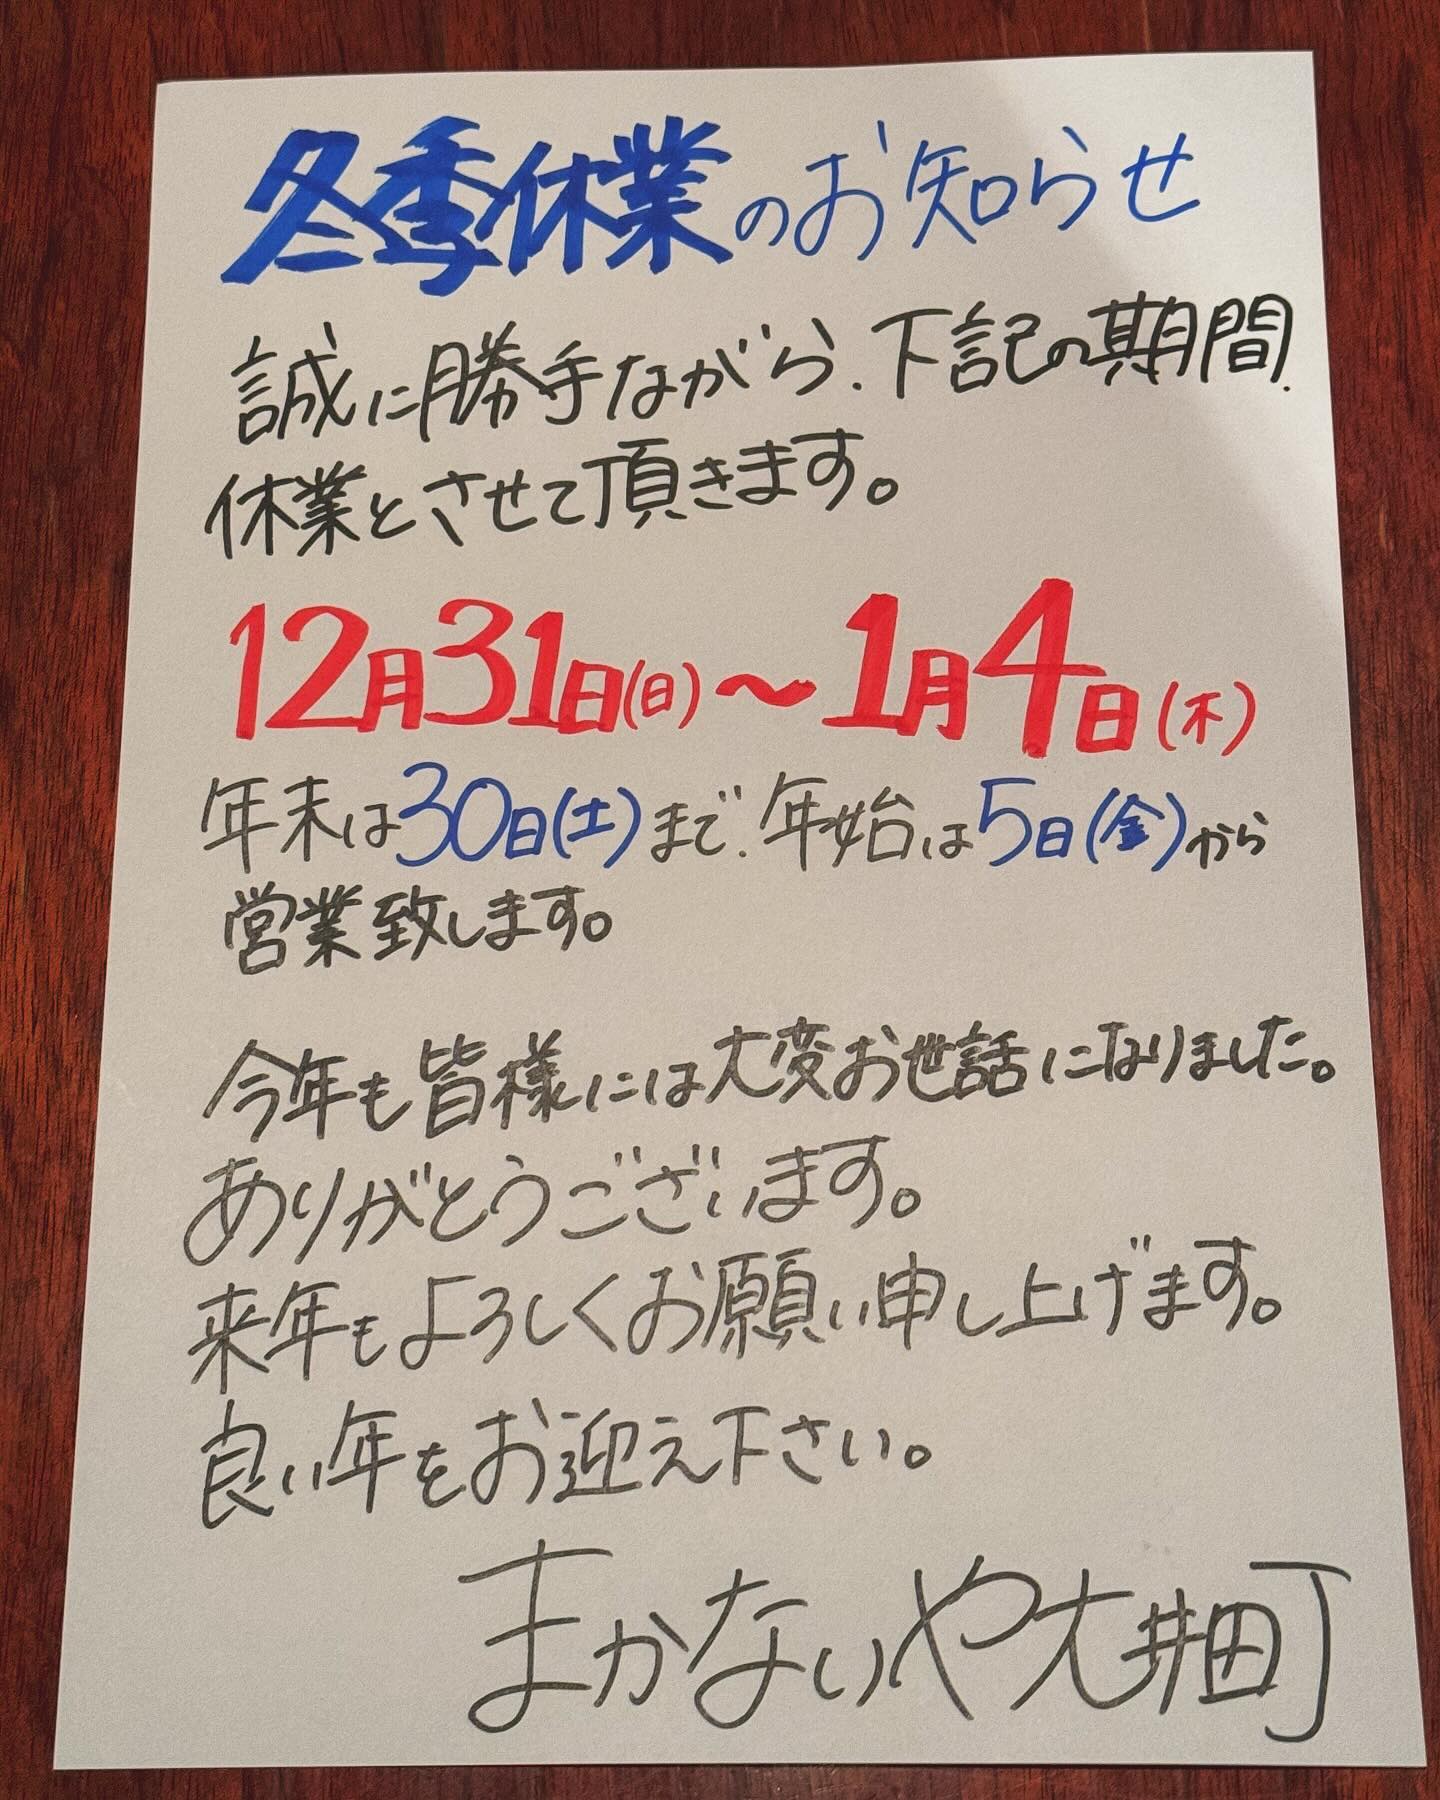 冬季休業のお知らせ
誠に勝手ながら、下記の期間、
休業とさせて頂きます。
12月31日(日)～1月4日(木)
年末は30日(土)まで、年始は5日(金)から
営業致します。
今年も皆様には大変お世話になりました。
ありがとうございます。
来年もよろしくお願い申し上げます。
良い年をお迎え下さい。
まかないや大井町